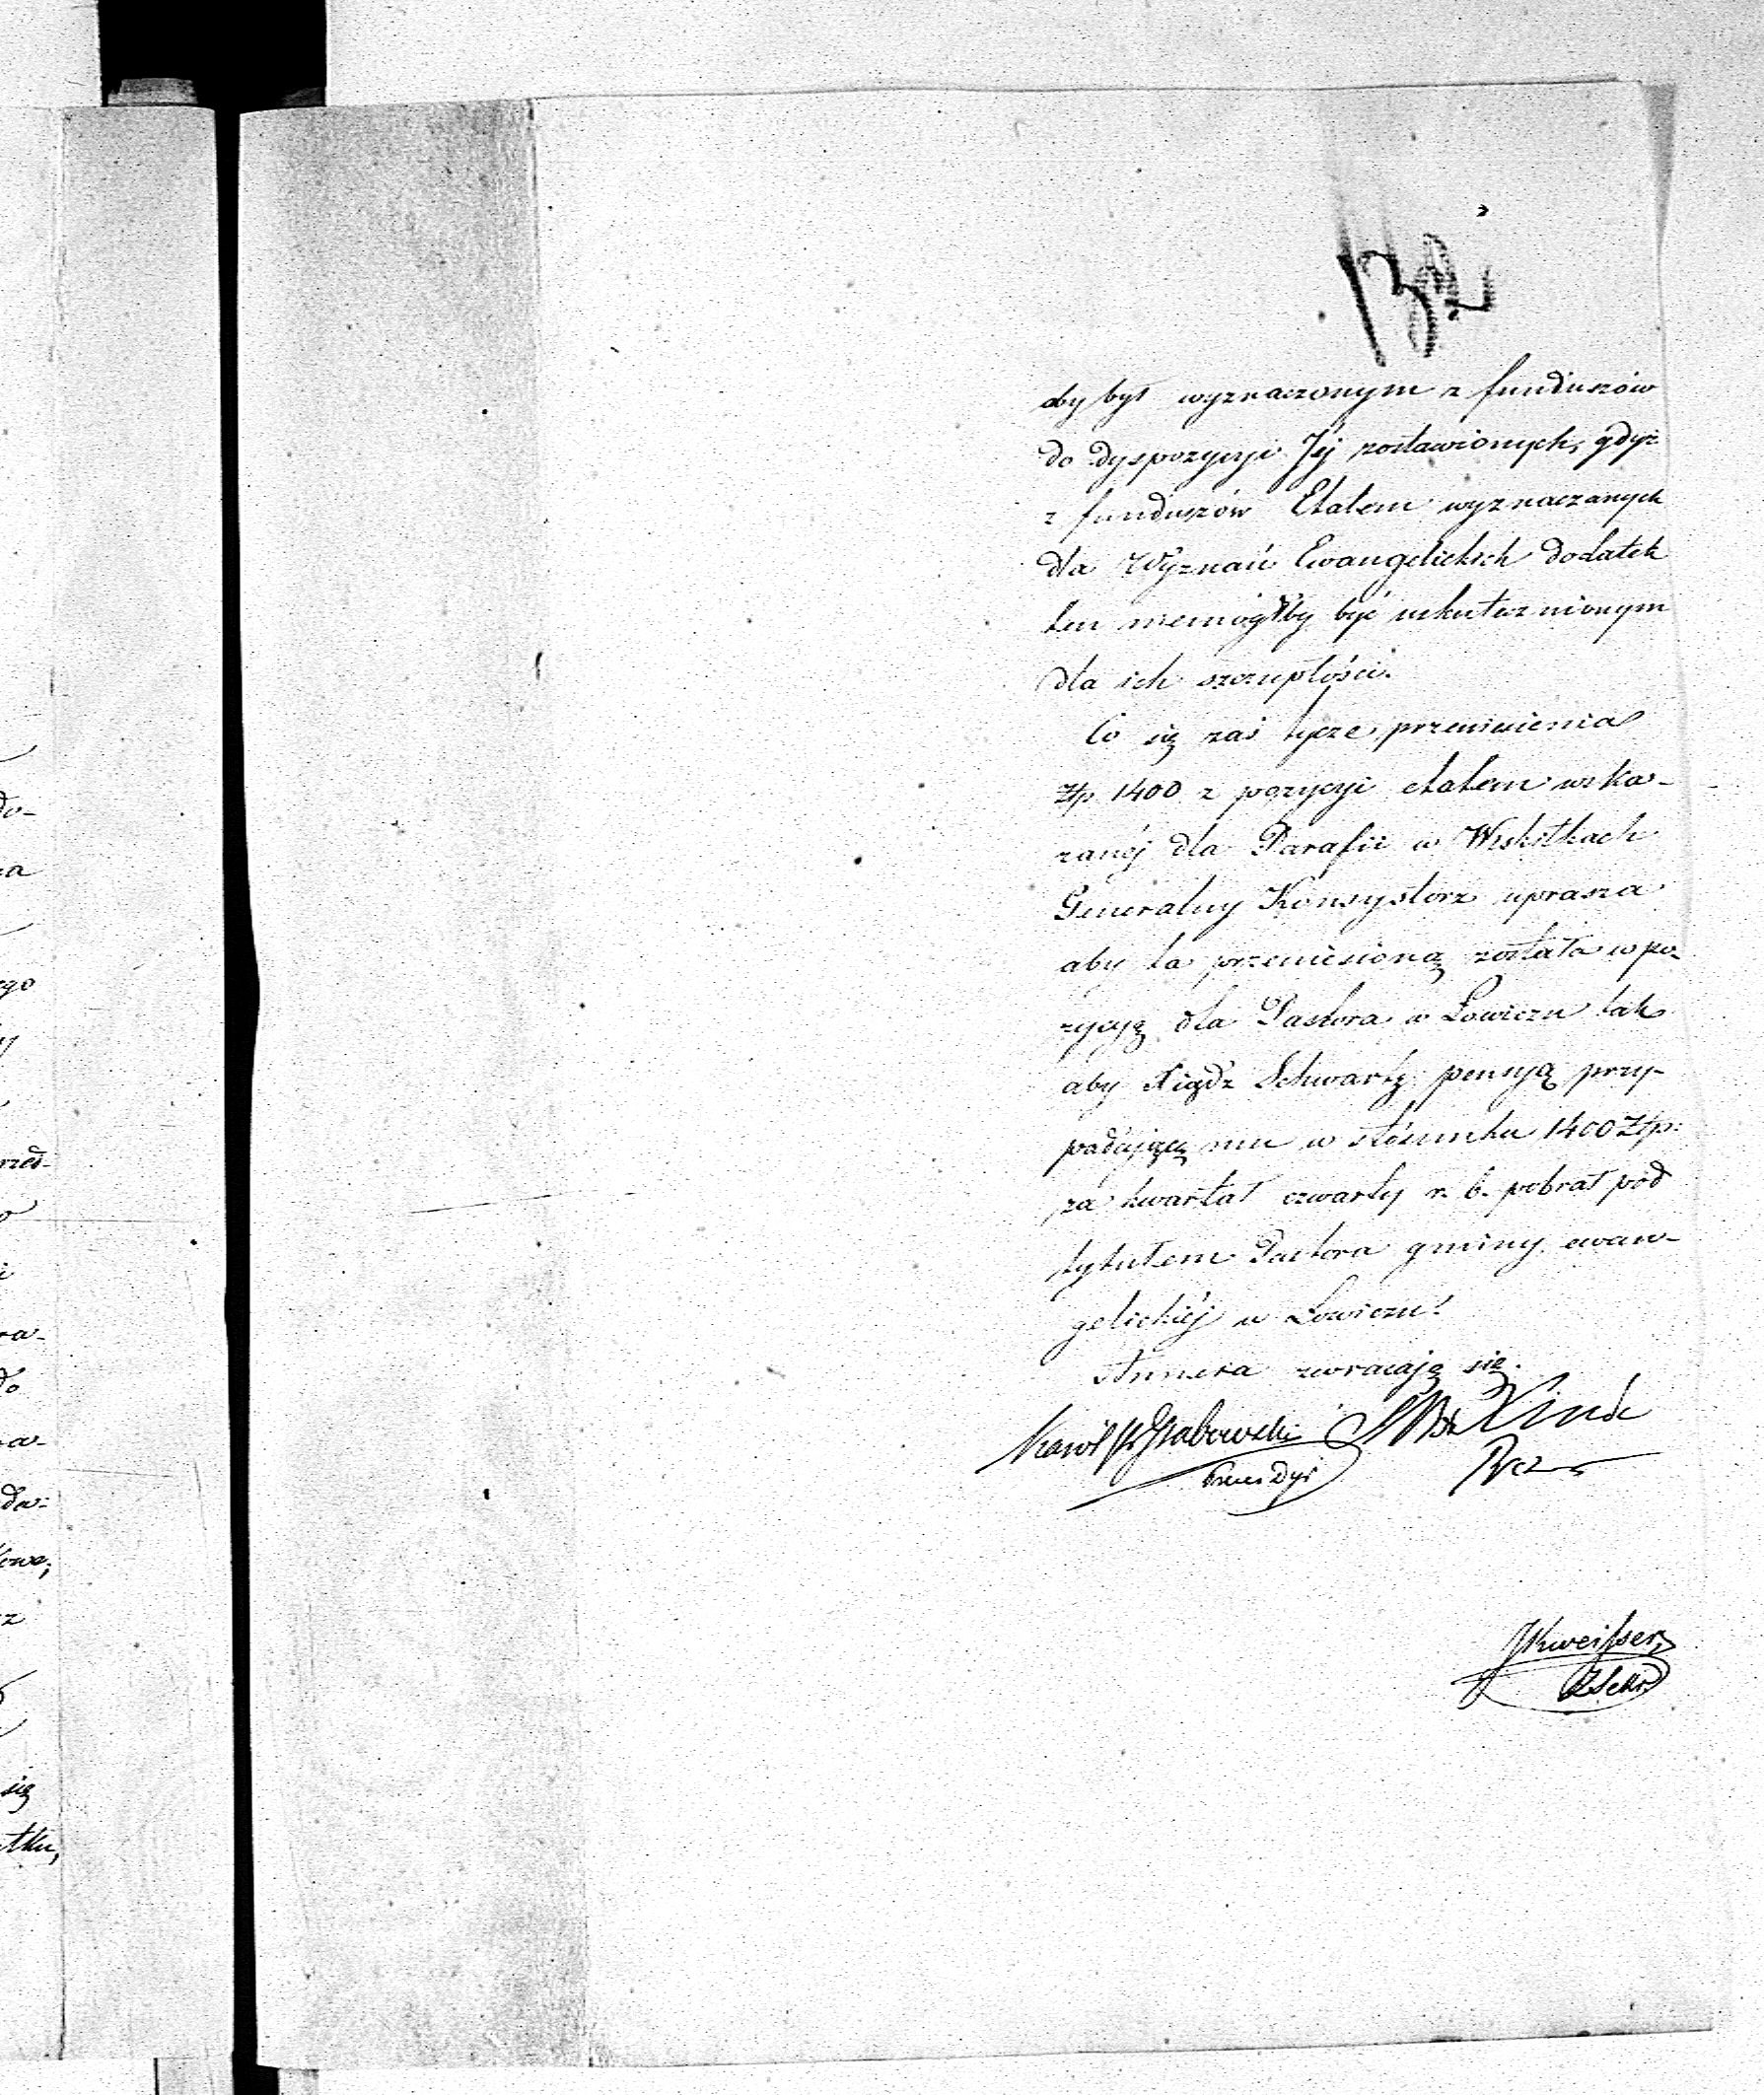 aby był wyznaczonym z funduszów
do dyspozycyi Jéj zostawionych, gdyż
z funduszów Etatem wyznaczanych
dla Wyznań Ewangelickich dodatek
ten niemógłby być uskutecznionym
dla ich szczupłości.
Co się zaś tycze przeniesienia
Złp 1400 z pozycyi etatem wska-
zanéj dla Parafii w Wiskitkach
Generalny Konsystorz uprasza
aby ta przeniesioną została w po-
zycyą dla Pastora w Łowiczu tak
aby Xiądz Schwartz pensyą przy-
padającą mu w stósunku 1400 Złp:
za kwartał czwarty r. b. pobrał pod
tytułem Pastora gminy ewan-
gelickiéj w Łowiczu.
Annexa zwracają się.
Karol Hr Grabowski
Prezes Dyr